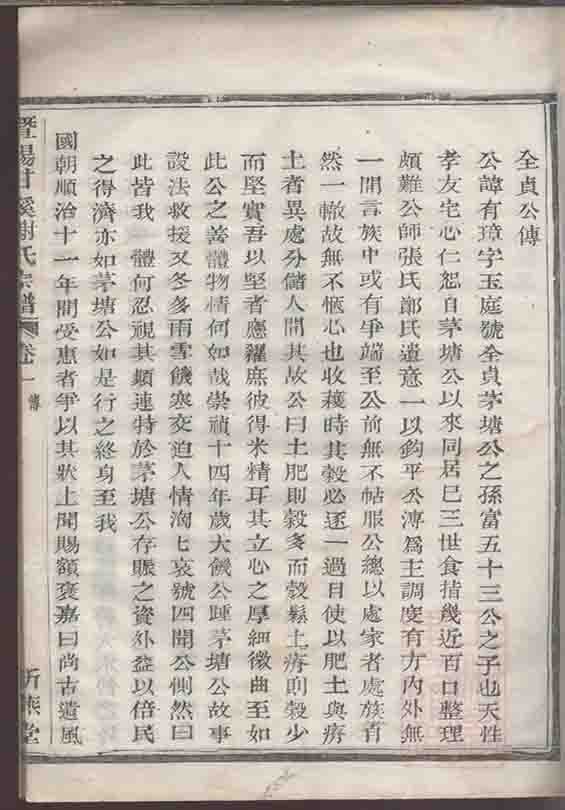 全貞公傳
公諱有璋字玉庭號全貞茅塘公之孫富五十三公之子也天性
孝友宅心仁恕自茅塘公以來同居已三世食指幾近百口整理
頗難公師張氏鄭氏遺意一以鈞平公溥爲主調度有方內外無
一閒言族中或有爭端至公前無不帖服公總以處家者處族育
然一轍故無不愜心也收穫時其穀必逐一過目使以肥土與瘠
土者異處分儲人問其故公曰土肥則穀多而殼鬆土瘠則穀少
而堅實吾以堅者應糴庶彼得米精耳其立心之厚細微曲至如
此公之善體物情何如哉崇禎十四年歲大饑公踵茅塘公故事
設法救援又冬多雨雪饑寒交迫人情洶七哀號四聞公惻然曰
此皆我 體何忍視其顛連特於茅塘公存賑之資外益以倍民
之得濟亦如茅塘公如是行之終身至我
國朝順治十一年間受惠者爭以其狀上聞賜額褒嘉曰尚古遺風
暨陽甘溪謝氏宗譜
卷一
傳